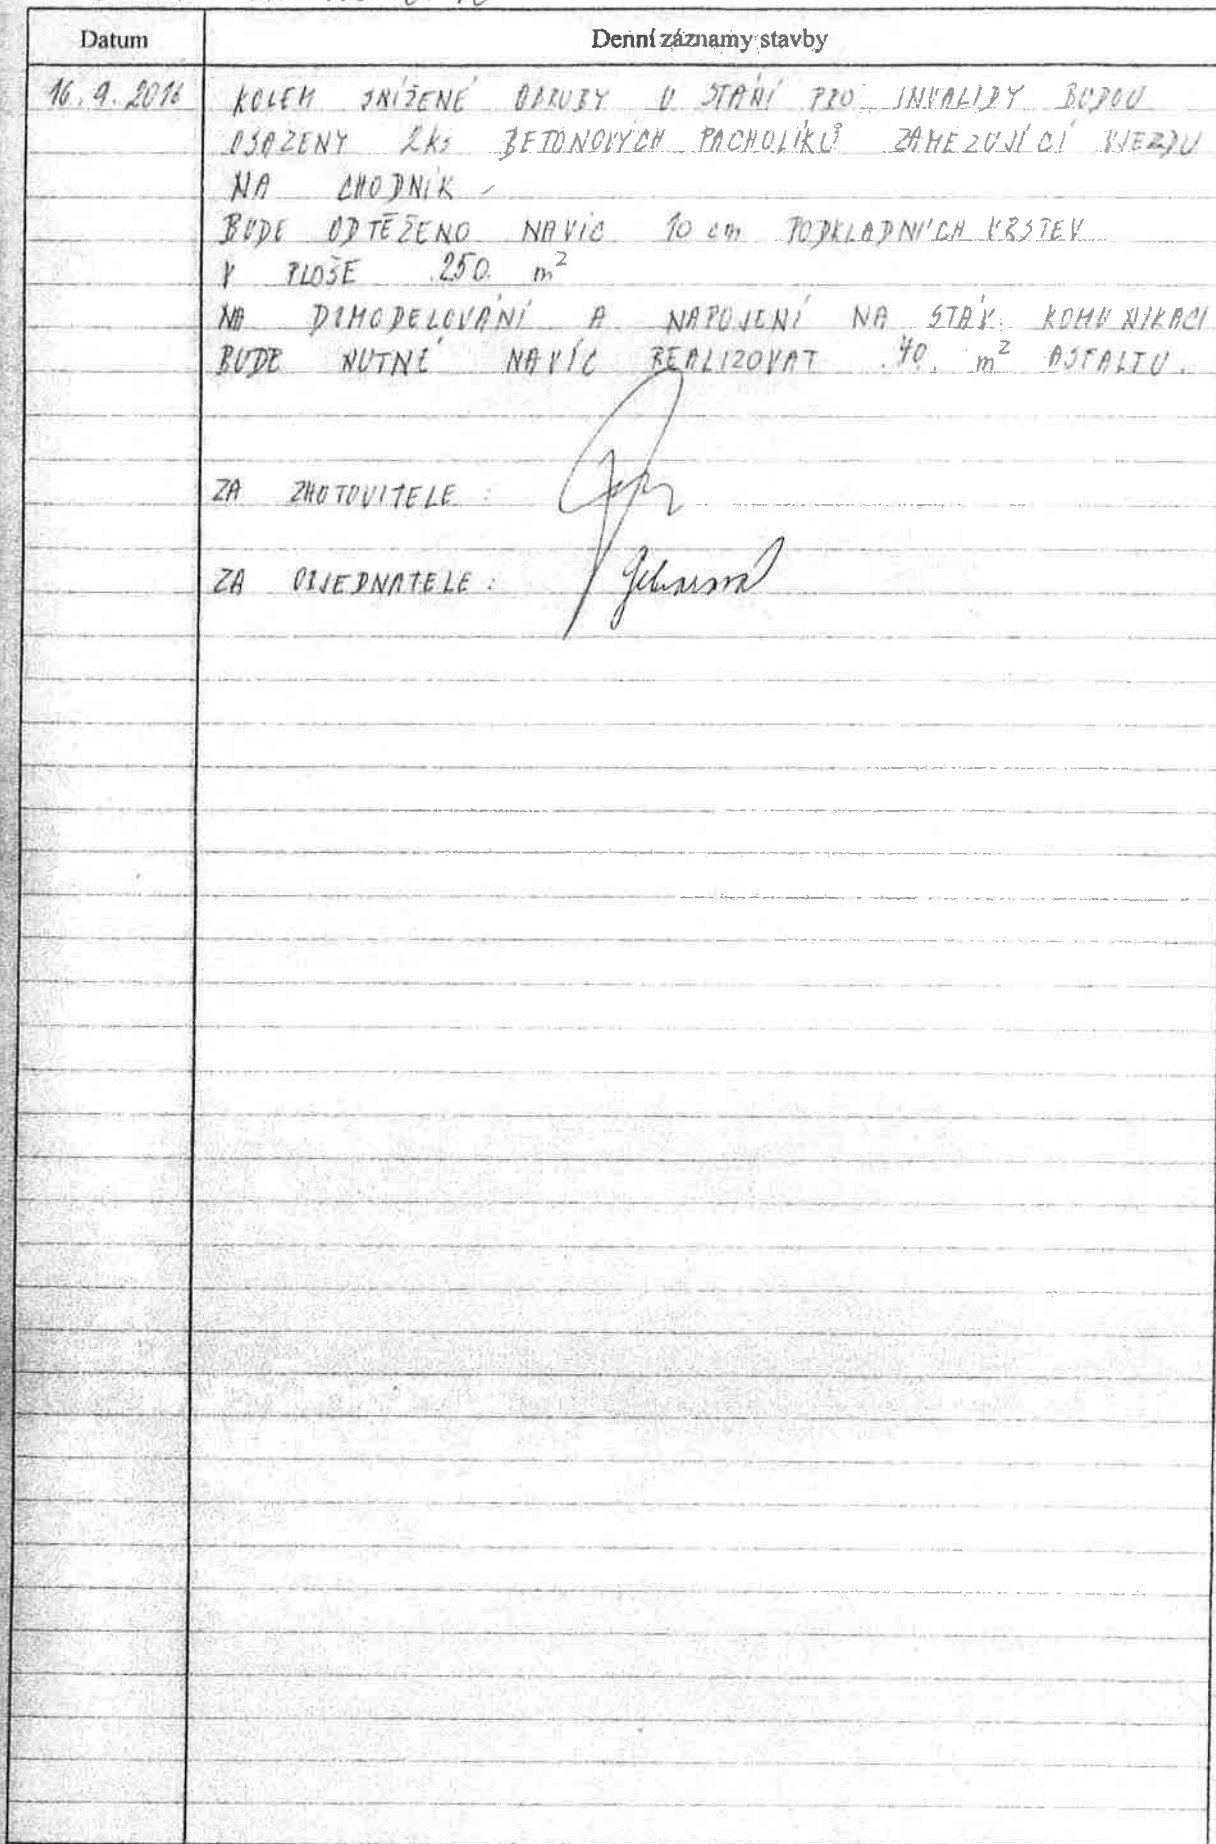 Datum Denní záznamy stavby
16.9.2016 KOLEM SNÍŽENÉ OBRUBY U STÁNÍ PRO INVALIDY BUDOU
OSAZENY 2ks BETONOVÝCH PACHOLÍKŮ ZAMEZUJÍCÍ VJEZDU
NA CHODNÍK
BUDE ODTĚŽENO NAVÍC 10 cm PODKLADNÍCH VRSTEV
V PLOŠE 250 m²
NA DOMODELOVÁNÍ A NAPOJENÍ NA STÁV. KOMUNIKACI
BUDE NUTNÉ NAVÍC REALIZOVAT m² ASFALTU.
ZA ZHOTOVITELE :
ZA OBJEDNATELE :